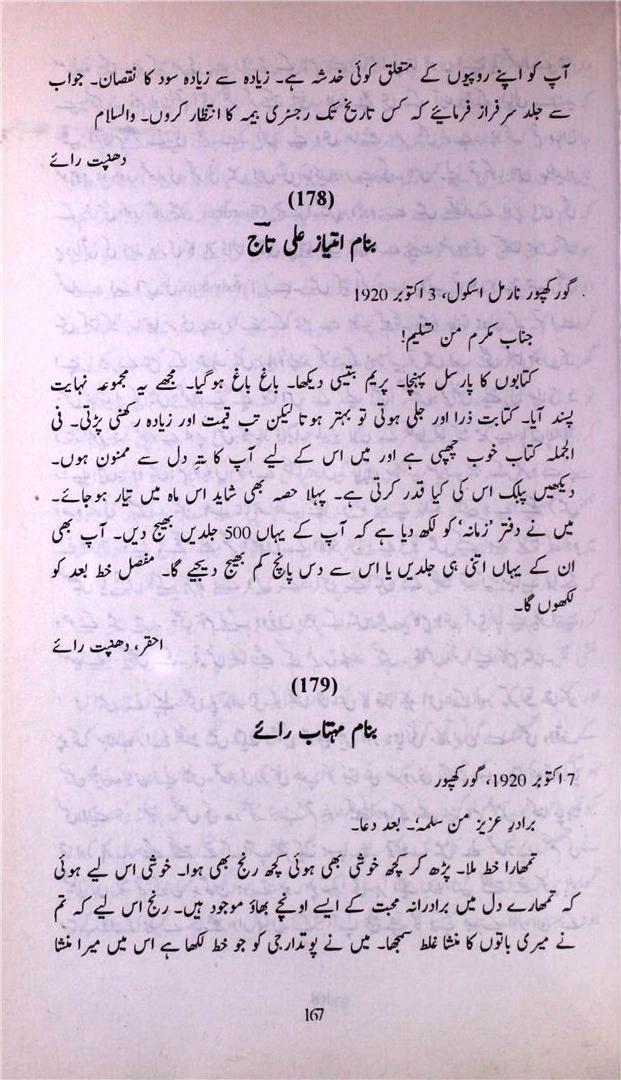 آپ کو اپنے روپیوں کے متعلق کوئی خدشہ ہے۔ زیادہ سے زیادہ سود کا نقصان۔ جواب
سے جلد سرفراز فرمائیے کہ کس تاریخ تک رجسٹری بیمہ کا انتظار کروں۔ والسلام
دھنپت رائے
(178)
بنام امتیاز علی تاج
گورکھپور نارمل اسکول، 3 اکتوبر 1920
جناب مکرم من تسلیم!
کتابوں کا پارسل پہنچا۔ پریم بتیسی دیکھا۔ باغ باغ ہوگیا۔ مجھے یہ مجموعہ نہایت
پسند آیا۔ کتابت ذرا اور جلی ہوتی تو بہتر ہوتا لیکن تب قیمت اور زیادہ رکھنی پڑتی۔ فی
الجملہ کتاب خوب چھپی ہے اور میں اس کے لیے آپ کا تہِ دل سے ممنون ہوں۔
دیکھیں پبلک اس کی کیا قدر کرتی ہے۔ پہلا حصہ بھی شاید اس ماہ میں تیار ہوجائے۔
میں نے دفتر ’زمانہ‘ کو لکھ دیا ہے کہ آپ کے یہاں 500 جلدیں بھیج دیں۔ آپ بھی
ان کے یہاں اتنی ہی جلدیں یا اس سے دس پانچ کم بھیج دیجیے گا۔ مفصل خط بعد کو
لکھوں گا۔
احقر، دھنپت رائے
(179)
بنام مہتاب رائے
7 اکتوبر 1920، گورکھپور
برادرِ عزیز من سلمہٗ۔ بعد دعا۔
تمھارا خط ملا۔ پڑھ کر کچھ خوشی بھی ہوئی کچھ رنج بھی ہوا۔ خوشی اس لیے ہوئی
کہ تمھارے دل میں برادرانہ محبت کے ایسے اونچے بھاؤ موجود ہیں۔ رنج اس لیے کہ تم
نے میری باتوں کا منشا غلط سمجھا۔ میں نے پوتدارجی کو جو خط لکھا ہے اس میں میرا منشا
167